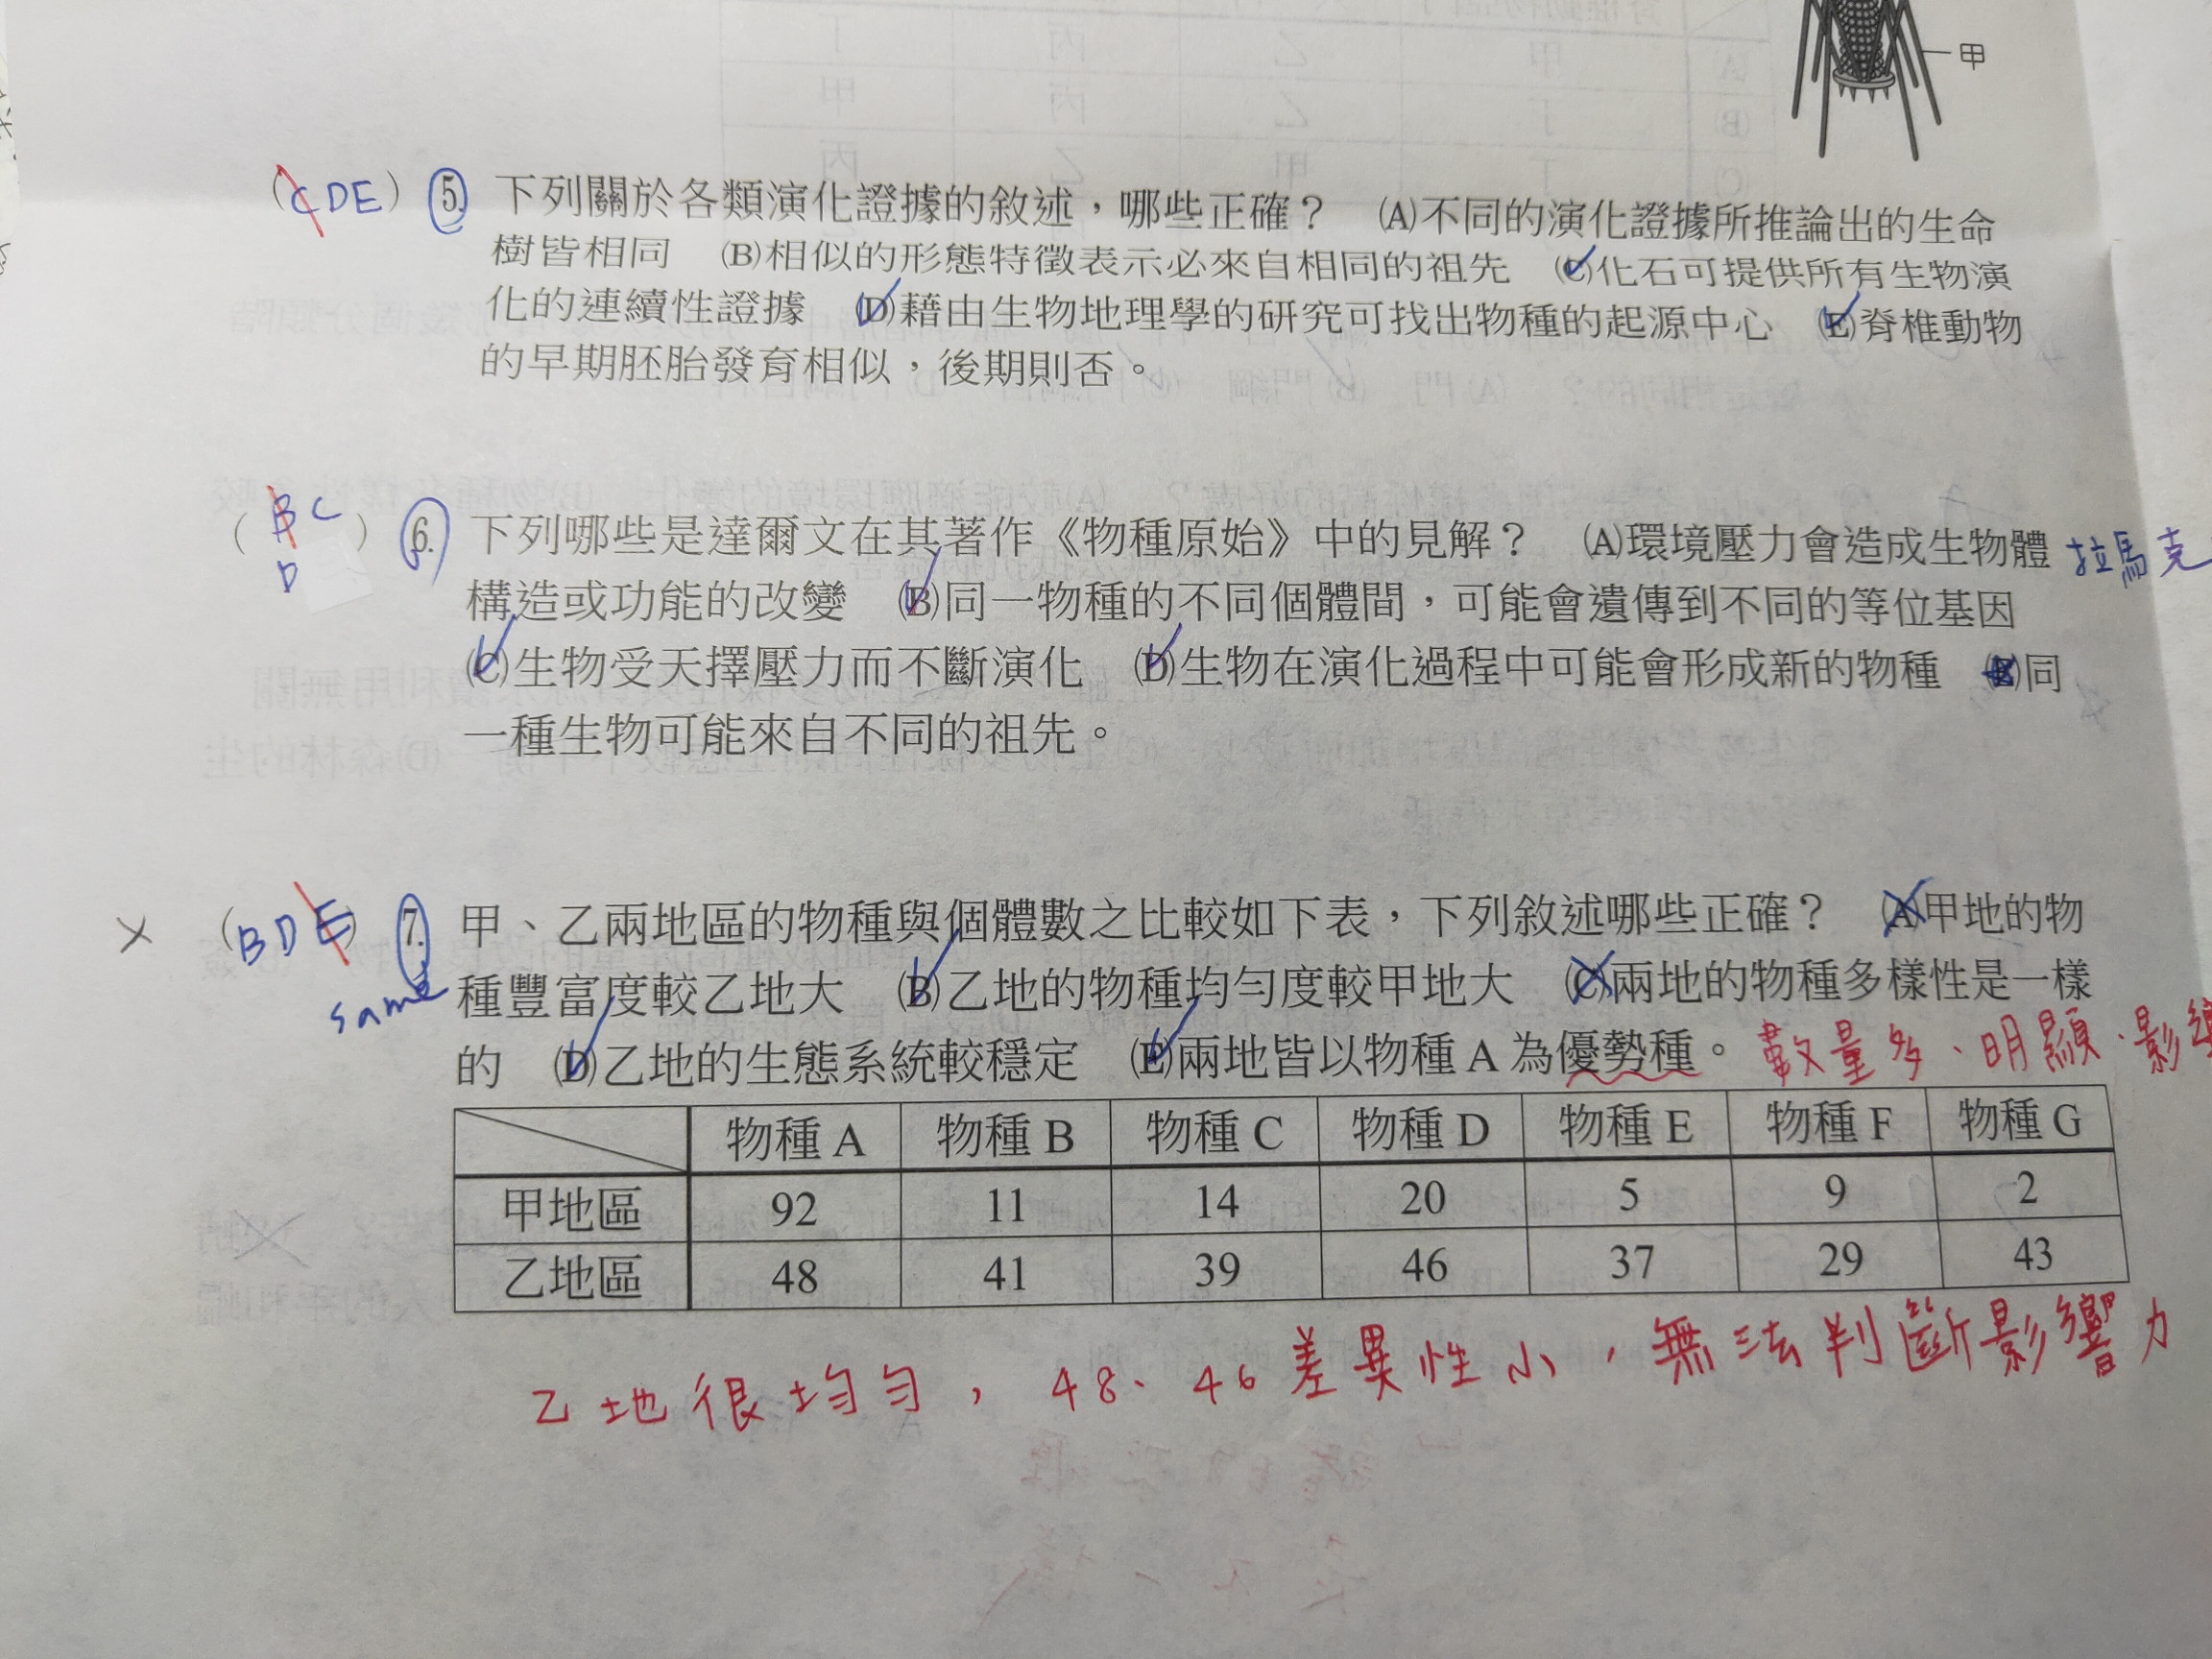 甲
(CDE) 5. 下列關於各類演化證據的敘述，哪些正確？ (A)不同的演化證據所推論出的生命
樹皆相同 (B)相似的形態特徵表示必來自相同的祖先 (C)化石可提供所有生物演
化的連續性證據 (D)藉由生物地理學的研究可找出物種的起源中心 (E)脊椎動物
的早期胚胎發育相似，後期則否。
(BCD) 6. 下列哪些是達爾文在其著作《物種原始》中的見解？ (A)環境壓力會造成生物體 拉馬克
構造或功能的改變 (B)同一物種的不同個體間，可能會遺傳到不同的等位基因
(C)生物受天擇壓力而不斷演化 (D)生物在演化過程中可能會形成新的物種 (E)同
一種生物可能來自不同的祖先。
(BDE) 7. 甲、乙兩地區的物種與個體數之比較如下表，下列敘述哪些正確？ (A)甲地的物
same 種豐富度較乙地大 (B)乙地的物種均勻度較甲地大 (C)兩地的物種多樣性是一樣
的 (D)乙地的生態系統較穩定 (E)兩地皆以物種 A 為優勢種。 數量多、明顯、影響
物種 A 物種 B 物種 C 物種 D 物種 E 物種 F 物種 G
甲地區 92 11 14 20 5 9 2
乙地區 48 41 39 46 37 29 43
乙地很均勻，48、46差異性小，無法判斷影響力